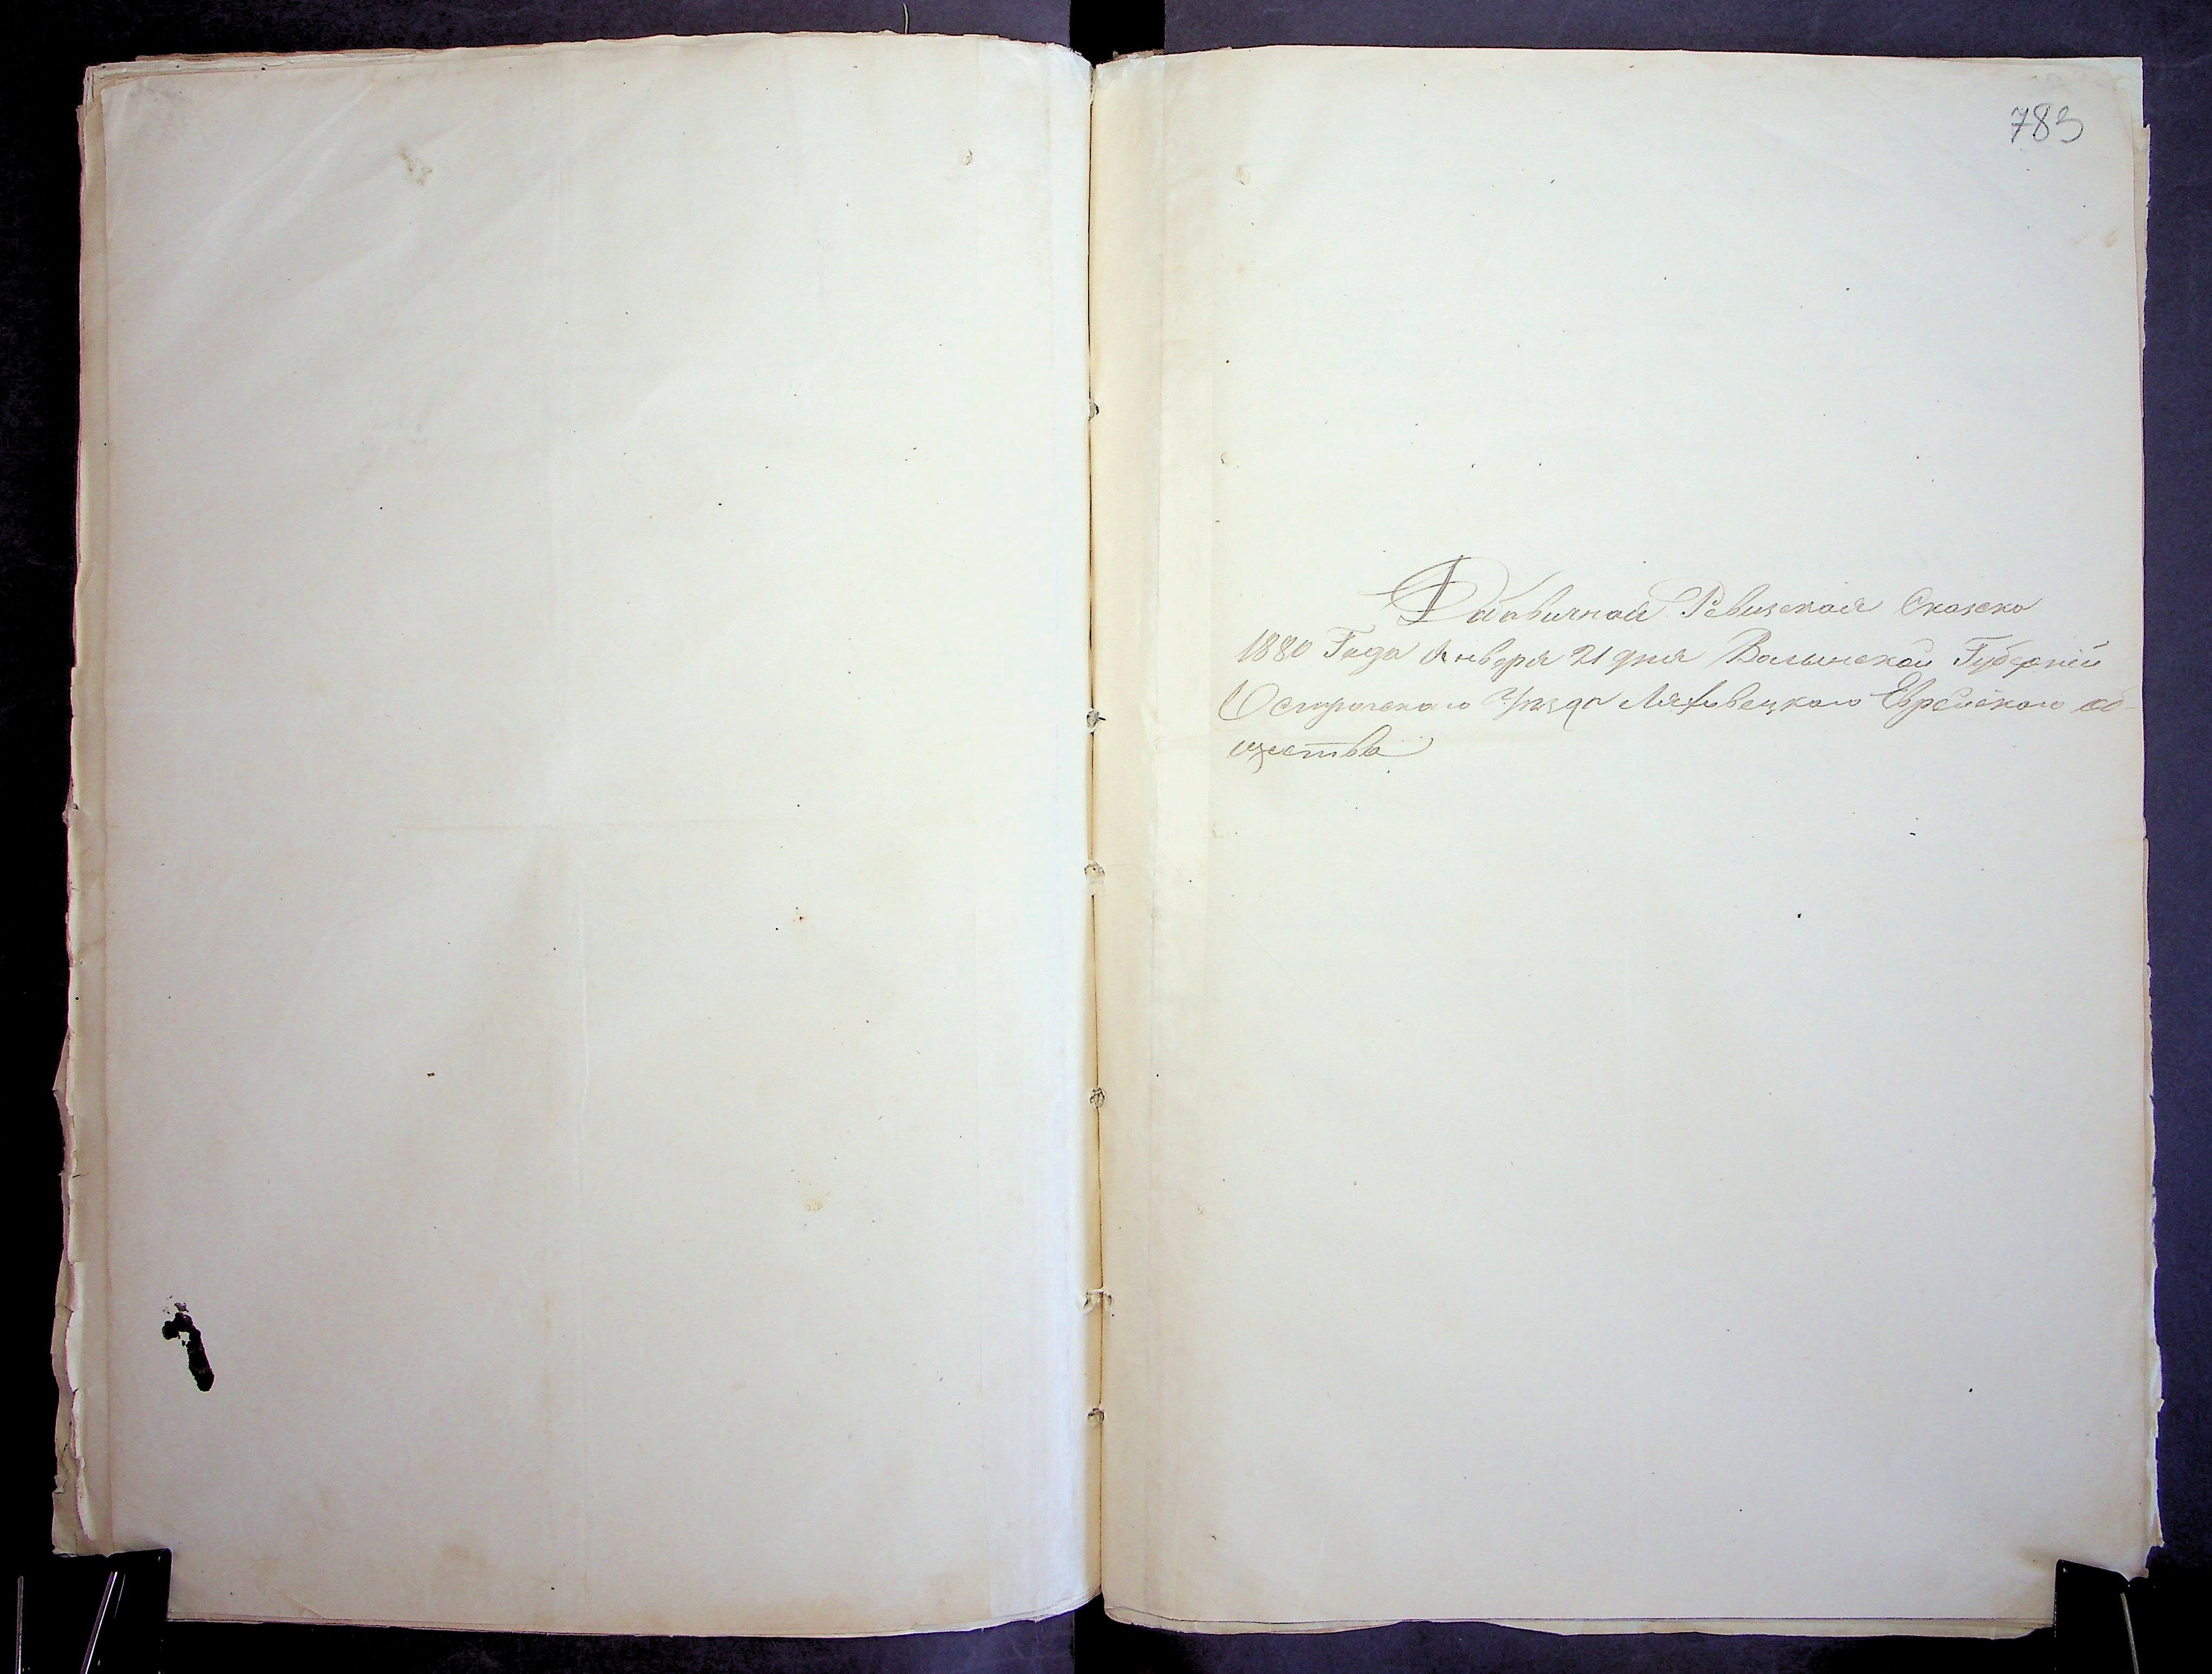 783
Добавичная Ревизская Сказка
1880 Года Января 21 дня Волынской Губернии
Острогскаго Уезда Ляховецкаго Еврейскаго об-
щества